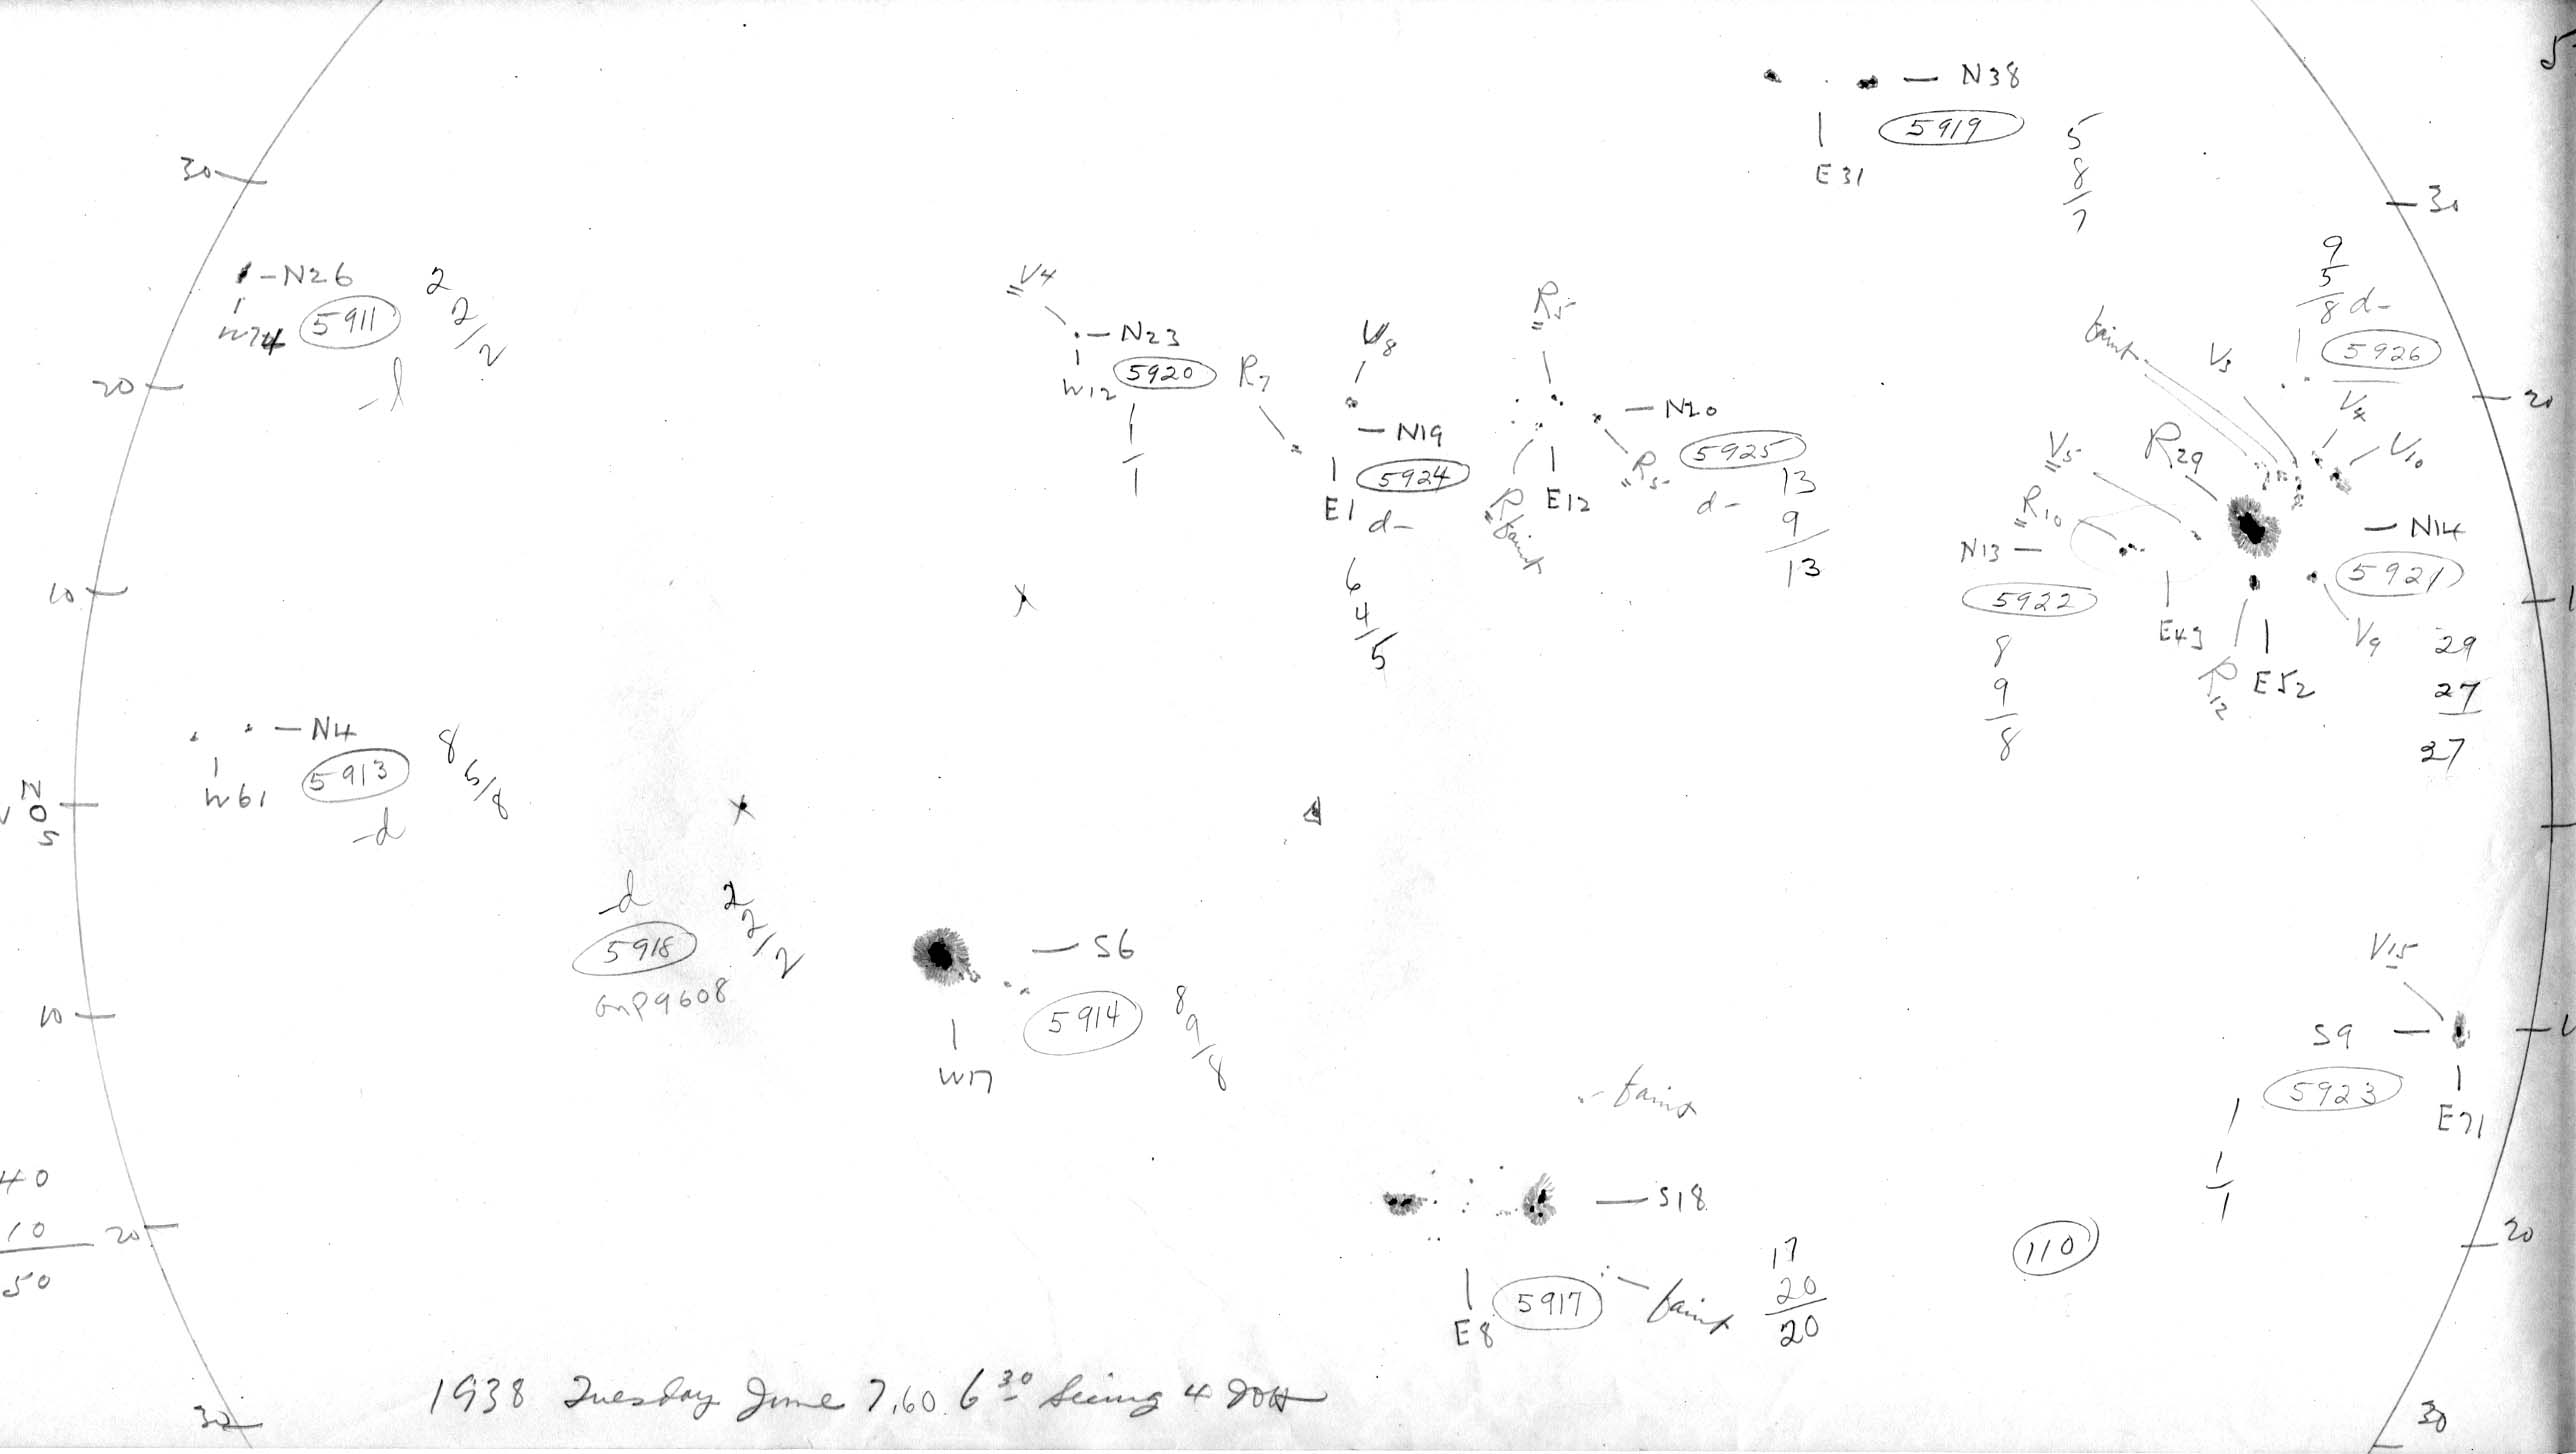 5
N38
5919
5
8
7
E31
30
30
N26
W74
5911
2
2/2
-l
V4
N23
W12
5920
1
1
R7
V8
N19
5924
E1
d-
6
4
5
R5
N20
5925
R5
E12
R faint
d-
13
9
13
9
5
8 d-
5926
faint
V3
V4
V10
V5
R29
R10
N13
5922
8
9
8
E43
N14
5921
V9
R12
E52
29
27
27
20
20
10
1
N4
W61
5913
8
5/8
-d
N
0
S
-d
5918
GnP9608
2
2/2
S6
5914
W17
8
9/8
10
V15
S9
5923
E71
1
1
1
faint
S18
E8
5917
faint
17
20
20
110
40
10
50
20
20
30
30
1938 Tuesday June 7.60 6 30 Seeing 4